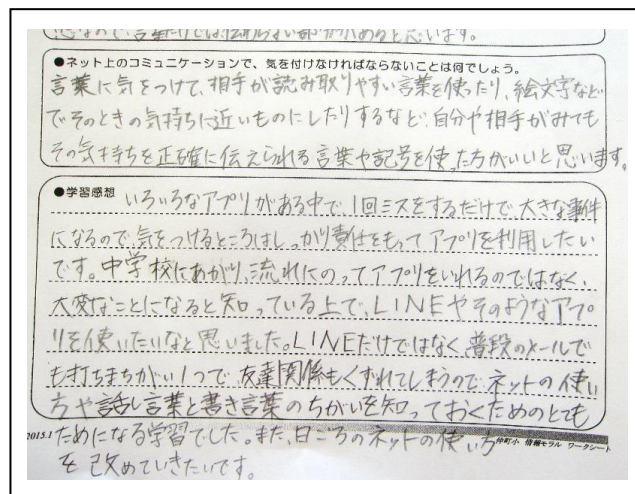 なので言葉だけでは伝わらない部分があると思います。
●ネット上のコミュニケーションで、気を付けなければならないことは何でしょう。
言葉に気をつけて、相手が読み取りやすい言葉を使ったり、絵文字など
でそのときの気持ちに近いものにしたりするなど、自分や相手がみても
その気持ちを正確に伝えられる言葉や記号を使った方がいいと思います。
●学習感想
いろいろなアプリがある中で、1回ミスをするだけで、大きな事件
になるので、気をつけるところはしっかり責任をもってアプリを利用したい
です。中学校にあがり、流れにのってアプリをいれるのではなく、
大変なことになると知っている上で、LINEやそのようなアプ
リを使いたいなと思いました。LINEだけではなく、普段のメールで
も打ちまちがい1つで、友達関係もくずれてしまうので、ネットの使い
方や話し言葉と書き言葉のちがいを知っておくためのとても
2015.1
ためになる学習でした。また、日ごろのネットの使い方
仲町小 情報モラル ワークシート
を改めていきたいです。